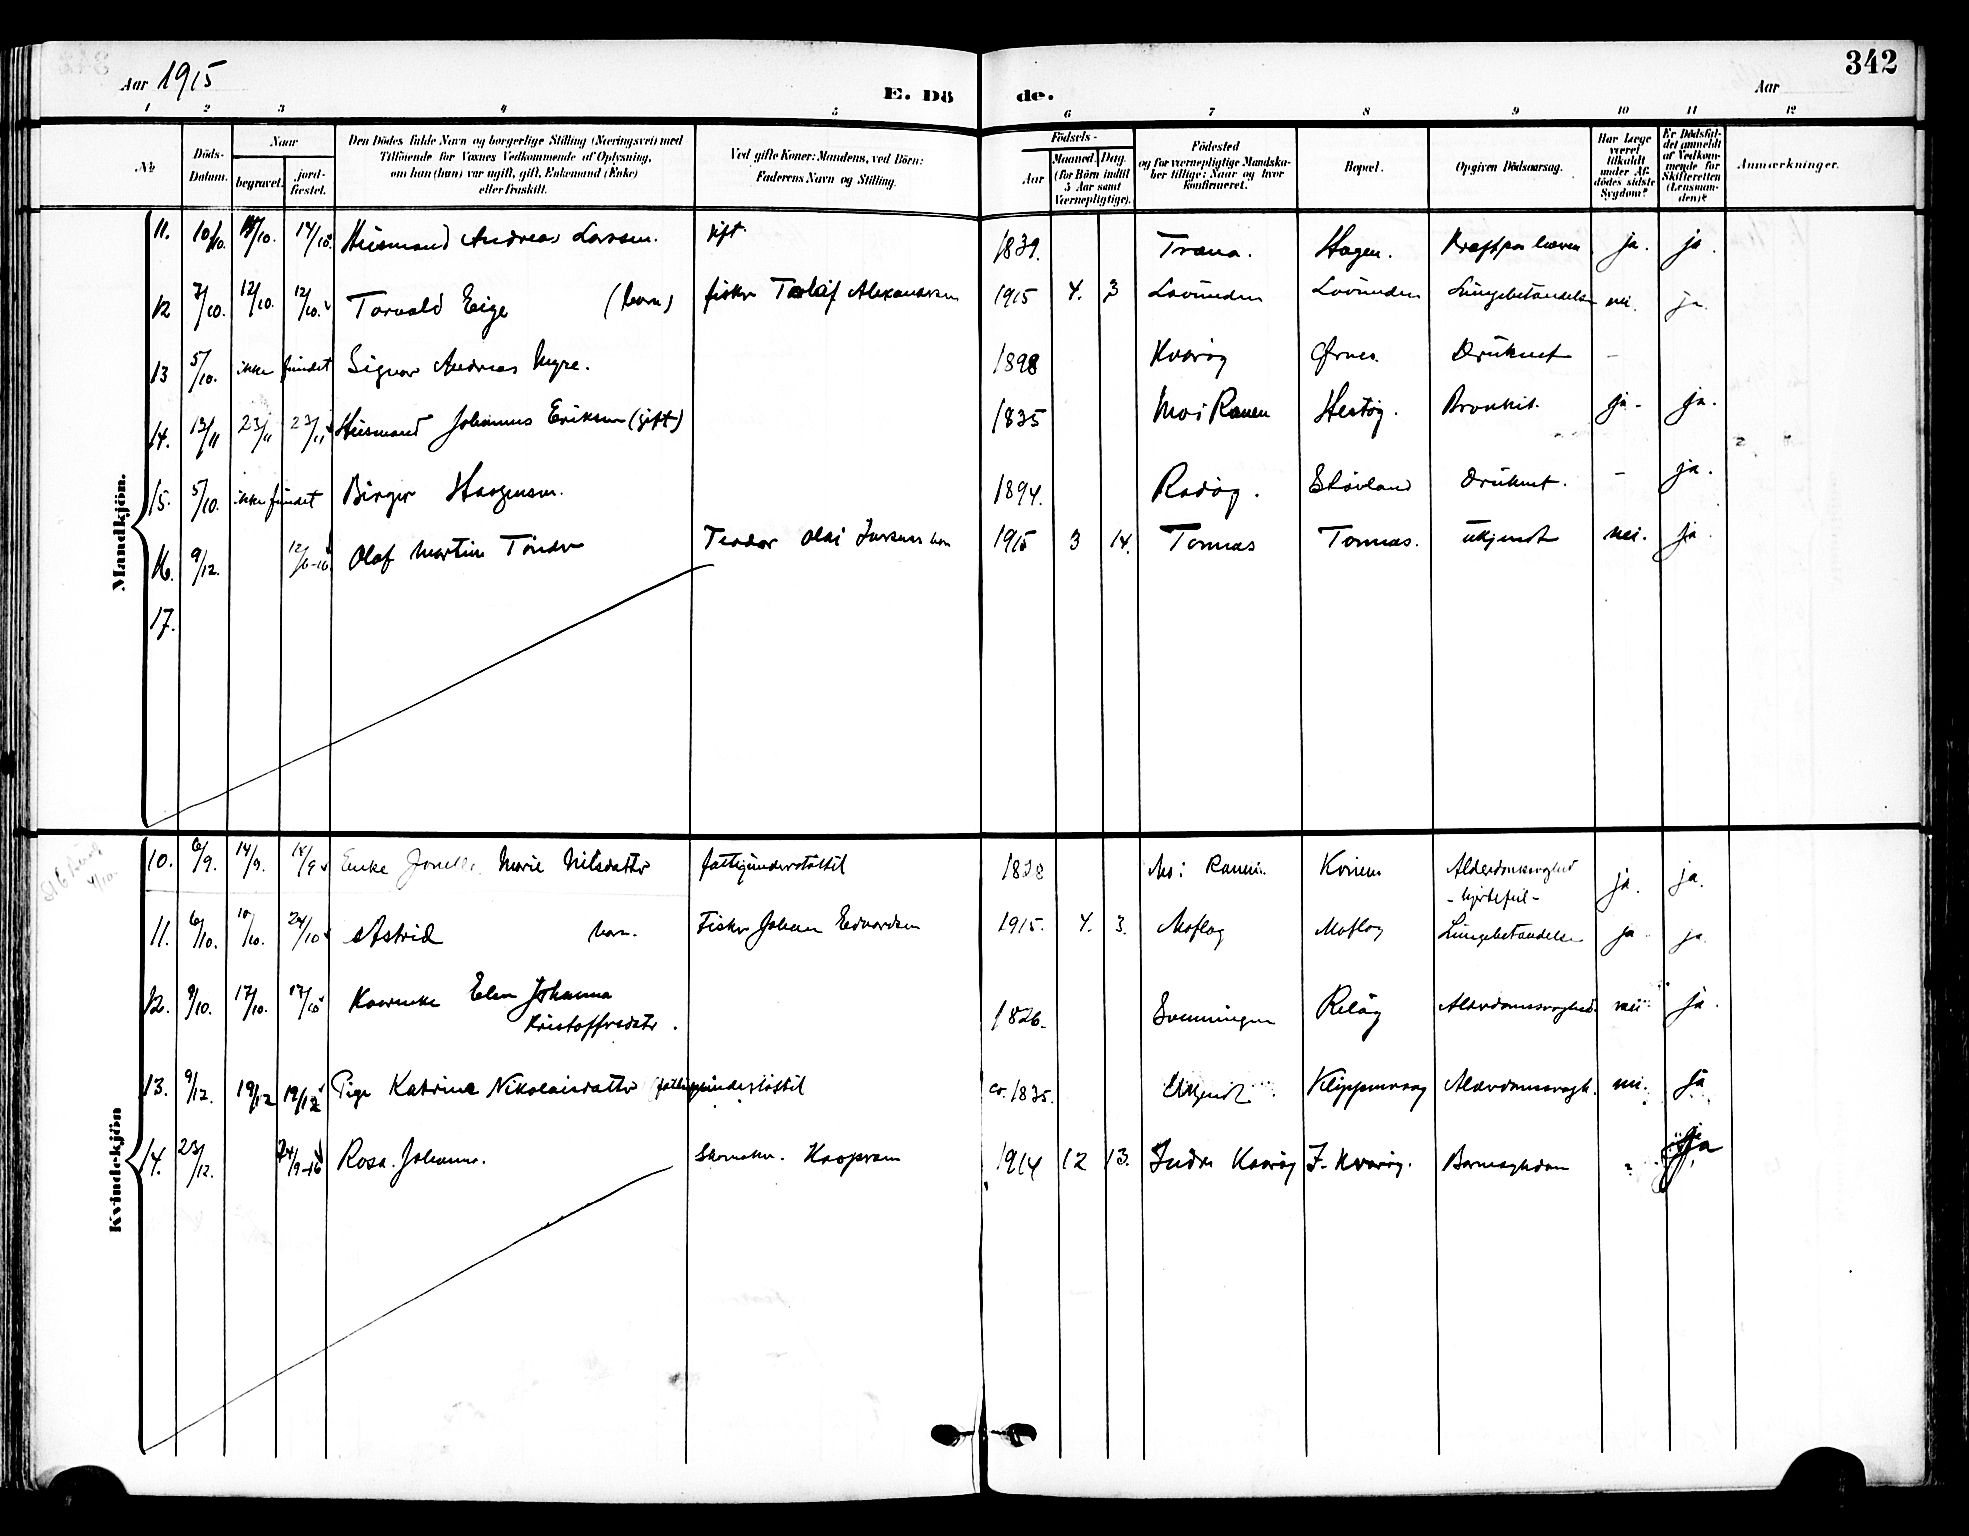 342
Aar 1915
E. Dö de.
Aar
1 2 3 4 5 6 7 8 9 10 11 12
No
Döds-Datum.
Naar
begravet.
jord-fæstet.
Den Dödes fulde Navn og borgerlige Stilling (Næringsvei) med
Tilföiende for Voxnes Vedkommende af Oplysning,
om han (hun) var ugift, gift, Enkemand (Enke)
eller fraskilt.
Ved gifte Koner: Mandens, ved Börn:
Faderens Navn og Stilling.
Födsels-
Aar
Maaned. Dag.
(for Börn indtil
5 Aar samt
Værnepligtige).
Födested
og for værnepligtige Mandska-
ber tillige: Naar og hvor
konfirmeret.
Bopæl.
Opgiven Dödsaarsag.
Har Læge
været
tilkaldt
under Af-
dödes sidste
Sygdom?
Er Dödsfal-
det anmeldt
af Vedkom-
mende for
Skifteretten
(Lensman-
den)?
Anmærkninger.
Mandkjön.
11. 10/10. /10. 17/10. Husmand Andreas Larssen. gift 1839. Træna. Hagen. Kræft paa leveren ja. ja.
12 7/10. 12/10. 12/10. Torvald Eige (barn) fisker Alexandersen 1915 4. 3 Lovunden Lovunden Lungebetændelse nei. ja.
13 5/10. ikke fundet Signar Andreas Myre. 1898 Kvarøy Ørnes. Druknet –
14. 13/11 23/11 23/11 Husmand Johannes Eriksen (gift) 1835 Mo i Ranen Hestøy. Bronkit. ja. ja.
15. 5/10. ikke fundet Birger Haagensen. 1894. Rødøy. Støvland Druknet. – ja.
16. 9/12. 12/6-16. Olaf Martin Tønder Teodor Olai 1915 3 14. Tonnes Tonnes. ukjendt nei. ja.
17.
Kvindekjön
10. 6/9. 14/9. 14/9 Enke Marie Nilsdatter fattigunderstøttet 1828 Mo i Ranen. Alderdomssvaghed
- hjertefeil - ja. ja.
11. 6/10. 10/10. 24/10 Astrid barn. Fisker Johan Edvardsen 1915. 4. 3. Moflag Moflag Lungebetændelse ja. ja.
12. 9/10. 17/10. 17/10 Kaarenke Elen Johanna
Kristoffersdatr. 1826. Svenningen Reløy Alderdomssvaghed. nei. ja.
13. 9/12. 19/12 19/12 Pige Katrine Nikolaisdatter (fattigunderstøttet ca. 1835. Ukjendt. Klippinvaag Alderdomssvagh. nei. Ja
14. 23/12. 24/9-16 Rosa Johanne. Skomaker. 1914 12 13. Indre Kvarøy I. Kvarøy. Barnesykdom Ja